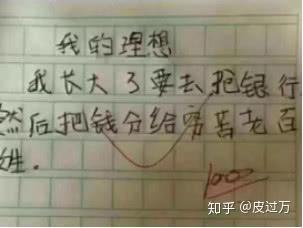 我的理想
我长大了要去抢银行,
然后把钱分给穷苦老百
姓.
100
知乎 @皮过万